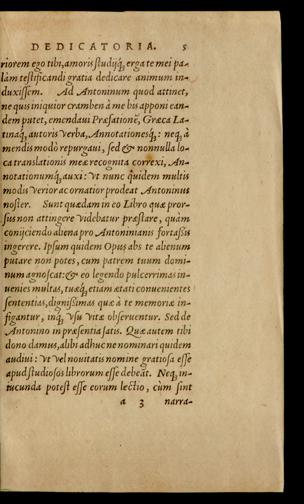 DEDICATORIA. 5
riorem ego tibi, amoris studijq́, erga te mei pa-
làm testificandi gratia dedicare animum in-
duxissem. Ad Antoninum quod attinet,
ne quis iniquior cramben à me bis apponi ean-
dem putet, emendaui Præfationē, Græca La-
tinaq́, autoris verba, Annotationesq́; : neq, à
mendis modò repurgaui, sed & nonnulla lo-
ca translationis meæ recognita correxi, An-
notationumq́, auxi: vt nunc quidem multis
modis verior ac ornatior prodeat Antoninus
noster. Sunt quædam in eo Libro quæ pror-
sus non attingere videbatur præstare, quàm
conijciendo aliena pro Antonianis fortassis
ingerere. Ipsum quidem Opus abs te alienum
putare non potes, cum patrem tuum domi-
num agnoscat: & eo legendo pulcerrimas in-
uenies multas, tuæq́, etiam ætati conuenientes
sententias, dignissimas quæ à te memoriæ in-
figantur, inq́, vsu vitæ obseruentur. Sed de
Antonino in præsentia satis. Quæ autem tibi
dono damus, alibi adhuc ne nominari quidem
audiui: vt vel nouitatis nomine gratiosa esse
apud studiosos librorum esse debeāt. Neq, in-
iucunda potest esse eorum lectio, cùm sint
a 3 narra-